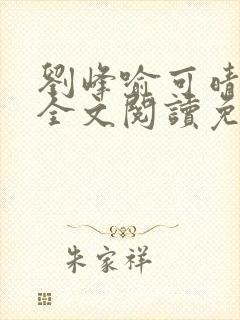 劉峰喻可晴
全文閱讀免
朱家祥